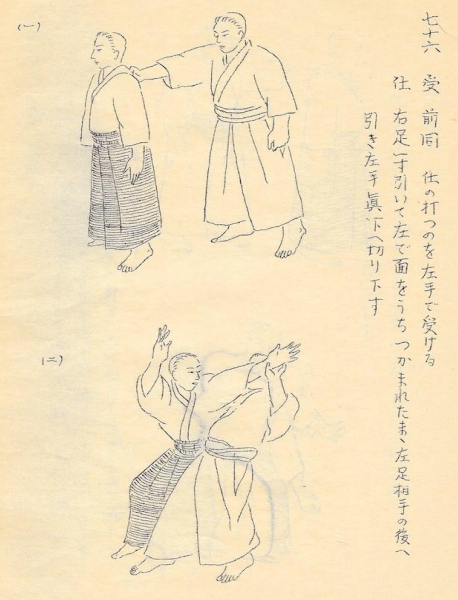 七十六 受 前同 仕の打つのを左手で受ける
仕 右足一寸引いて左で面をうちつかまれたまゝ左足相手の後へ
引き左手真下へ切り下す
(一)
(二)